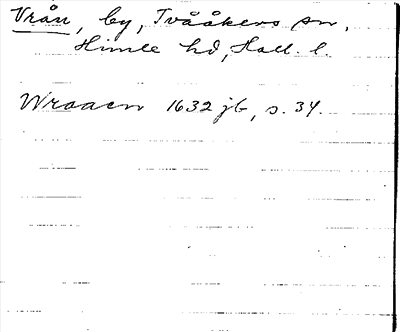 Vrån, by, Tvååkers sn,
Himle hd, Hall. l.
Wraaen 1632 jb, s. 34.